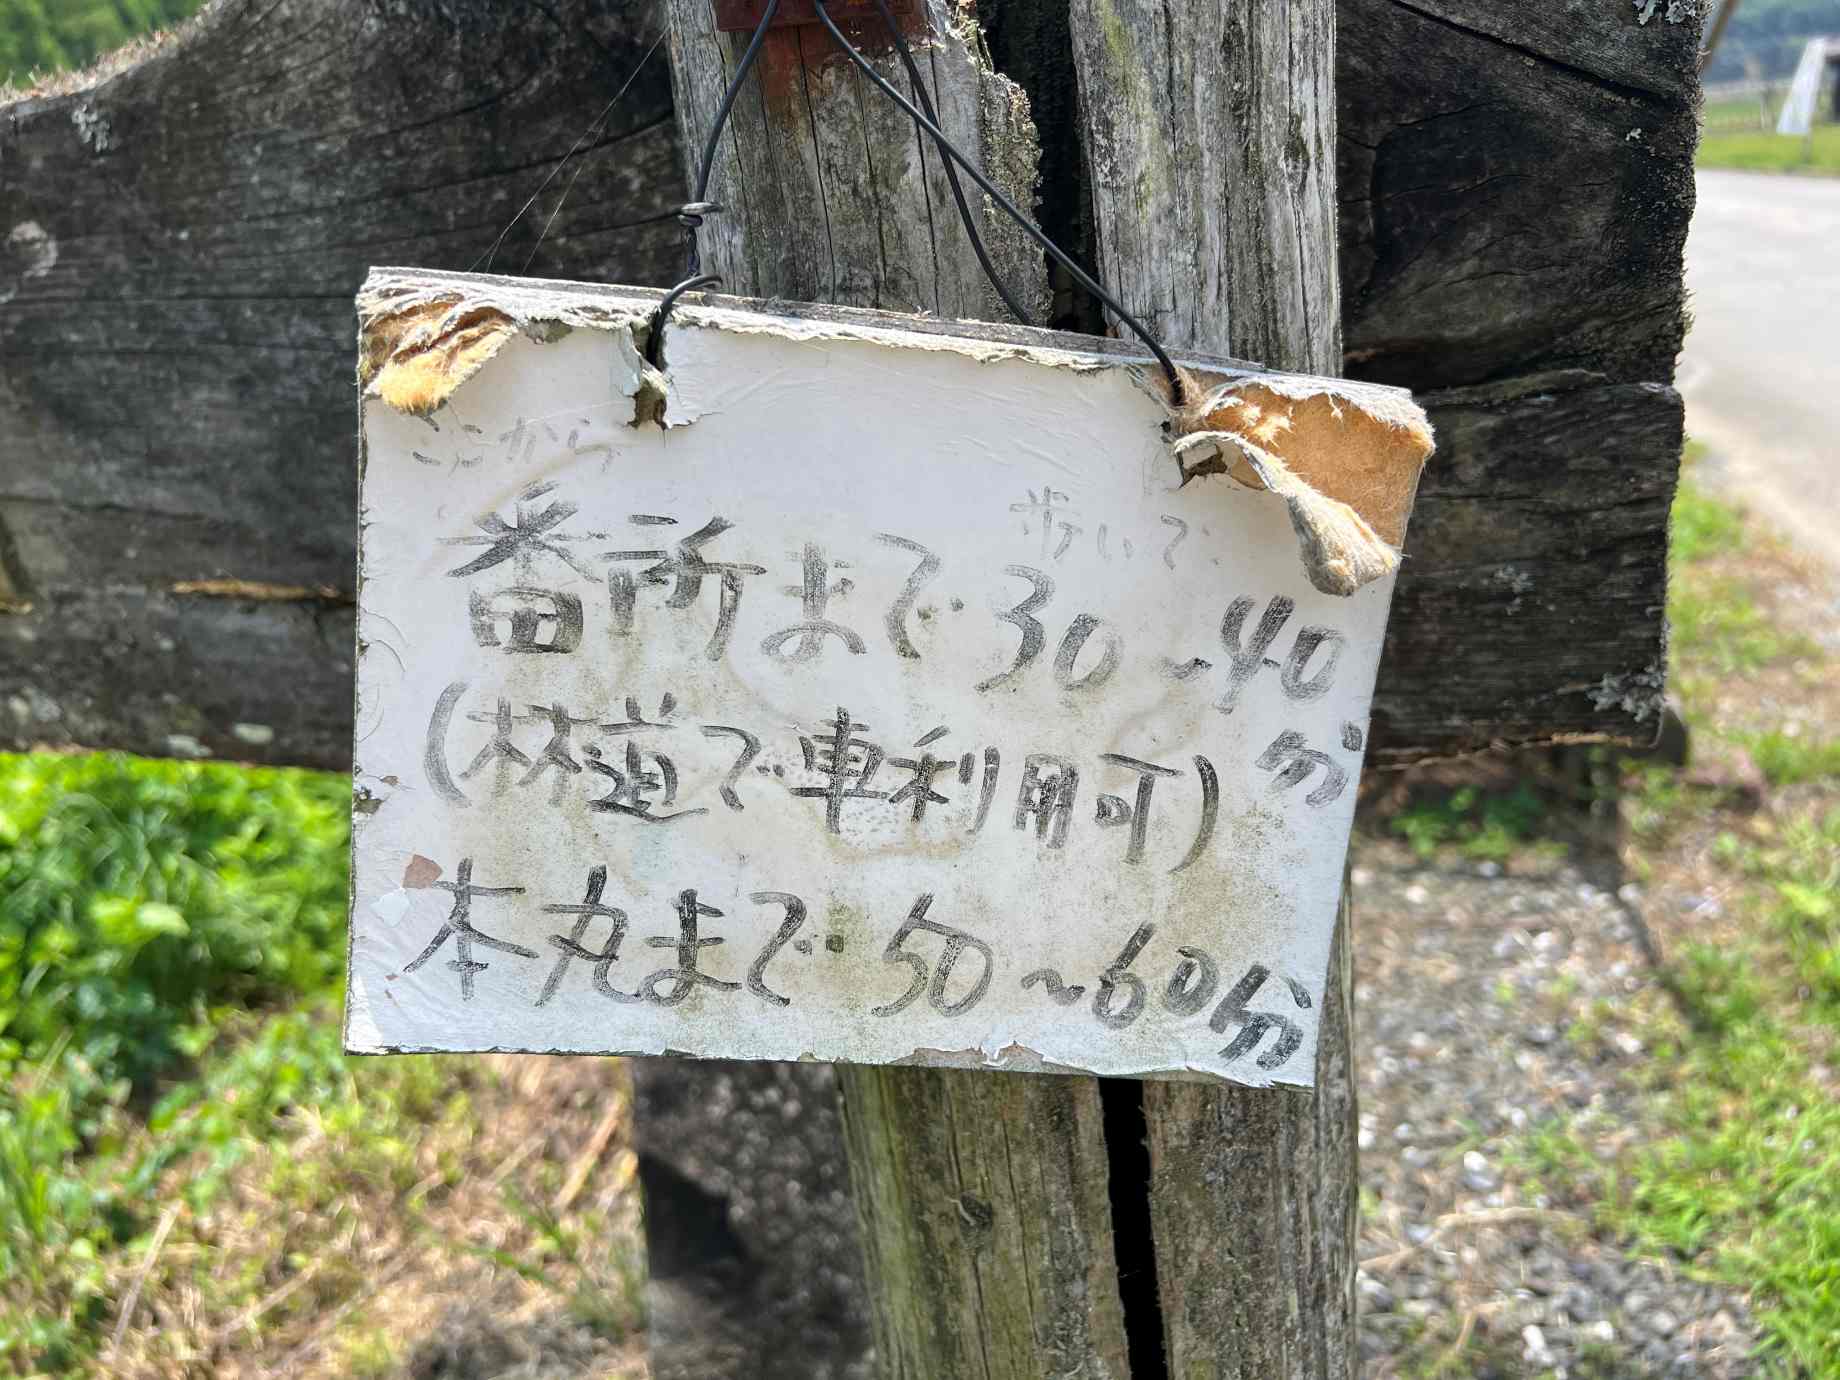 ここから
歩いて
番所まで 30~40分
(林道で車利用可)
本丸まで 50~60分